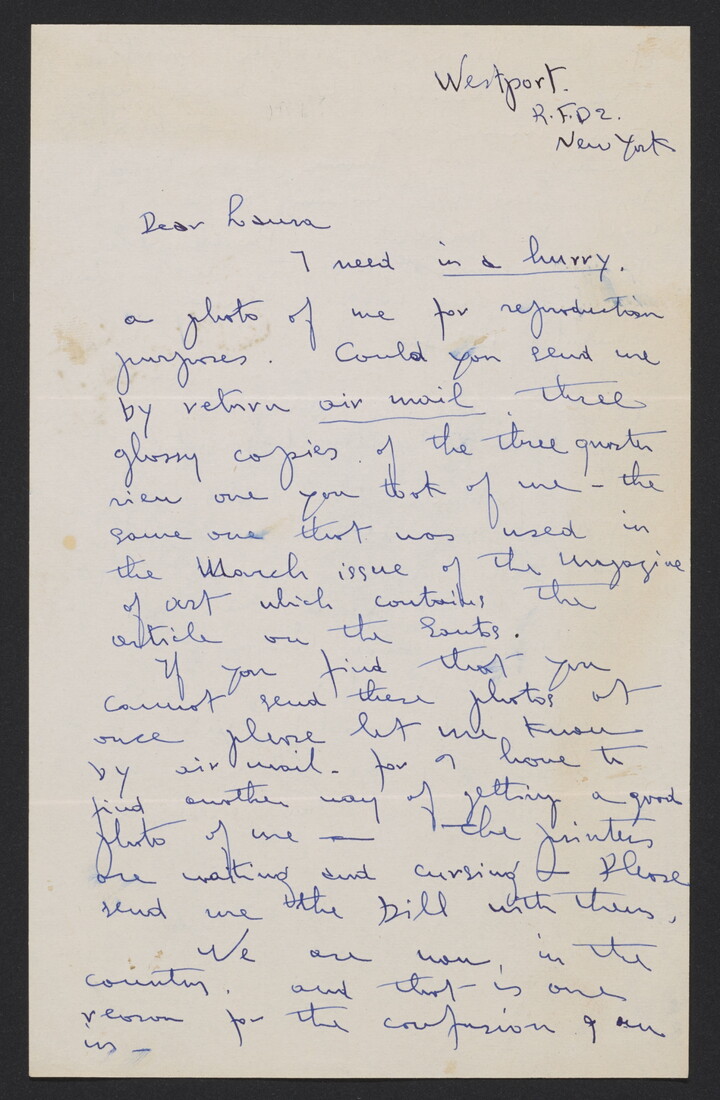 Westport.
R.F.D 2.
New York
Dear Laura
I need in a hurry.
a photo of me for reproduction
purposes. Could you send me
by return air mail, three
glossy copies of the three quarter
view one you took of me - the
same one that was used in
the March issue of the Magazine
of art which contains the
article on the Santos.
If you find that you
cannot send these photos at
once please let me know
by air mail - for I have to
find another way of getting a good
photo of me — the printers
are waiting and cursing - Please
send me the bill with them,
We are now, in the
country. and that is one
reason for the confusion I am
in -